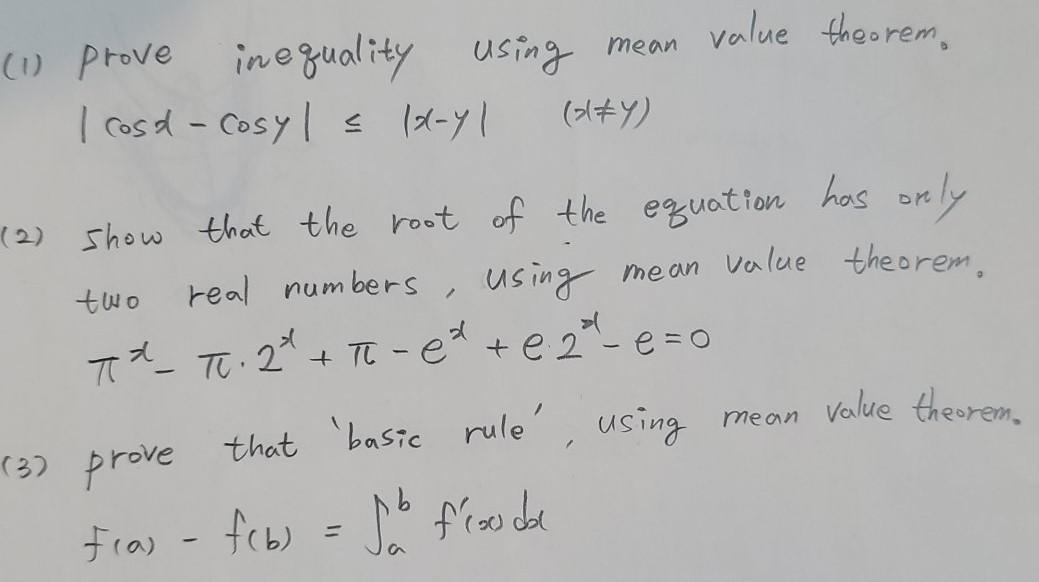 (1) prove inequality using mean value theorem.
| cosx - cosy | ≤ |x-y| (x≠y)
(2) show that the root of the equation has only
two real numbers, using mean value theorem.
π^x - π·2^x + π - e^x + e·2^x - e = 0
(3) prove that 'basic rule', using mean value theorem.
f(a) - f(b) = ∫_a^b f'(x) dx